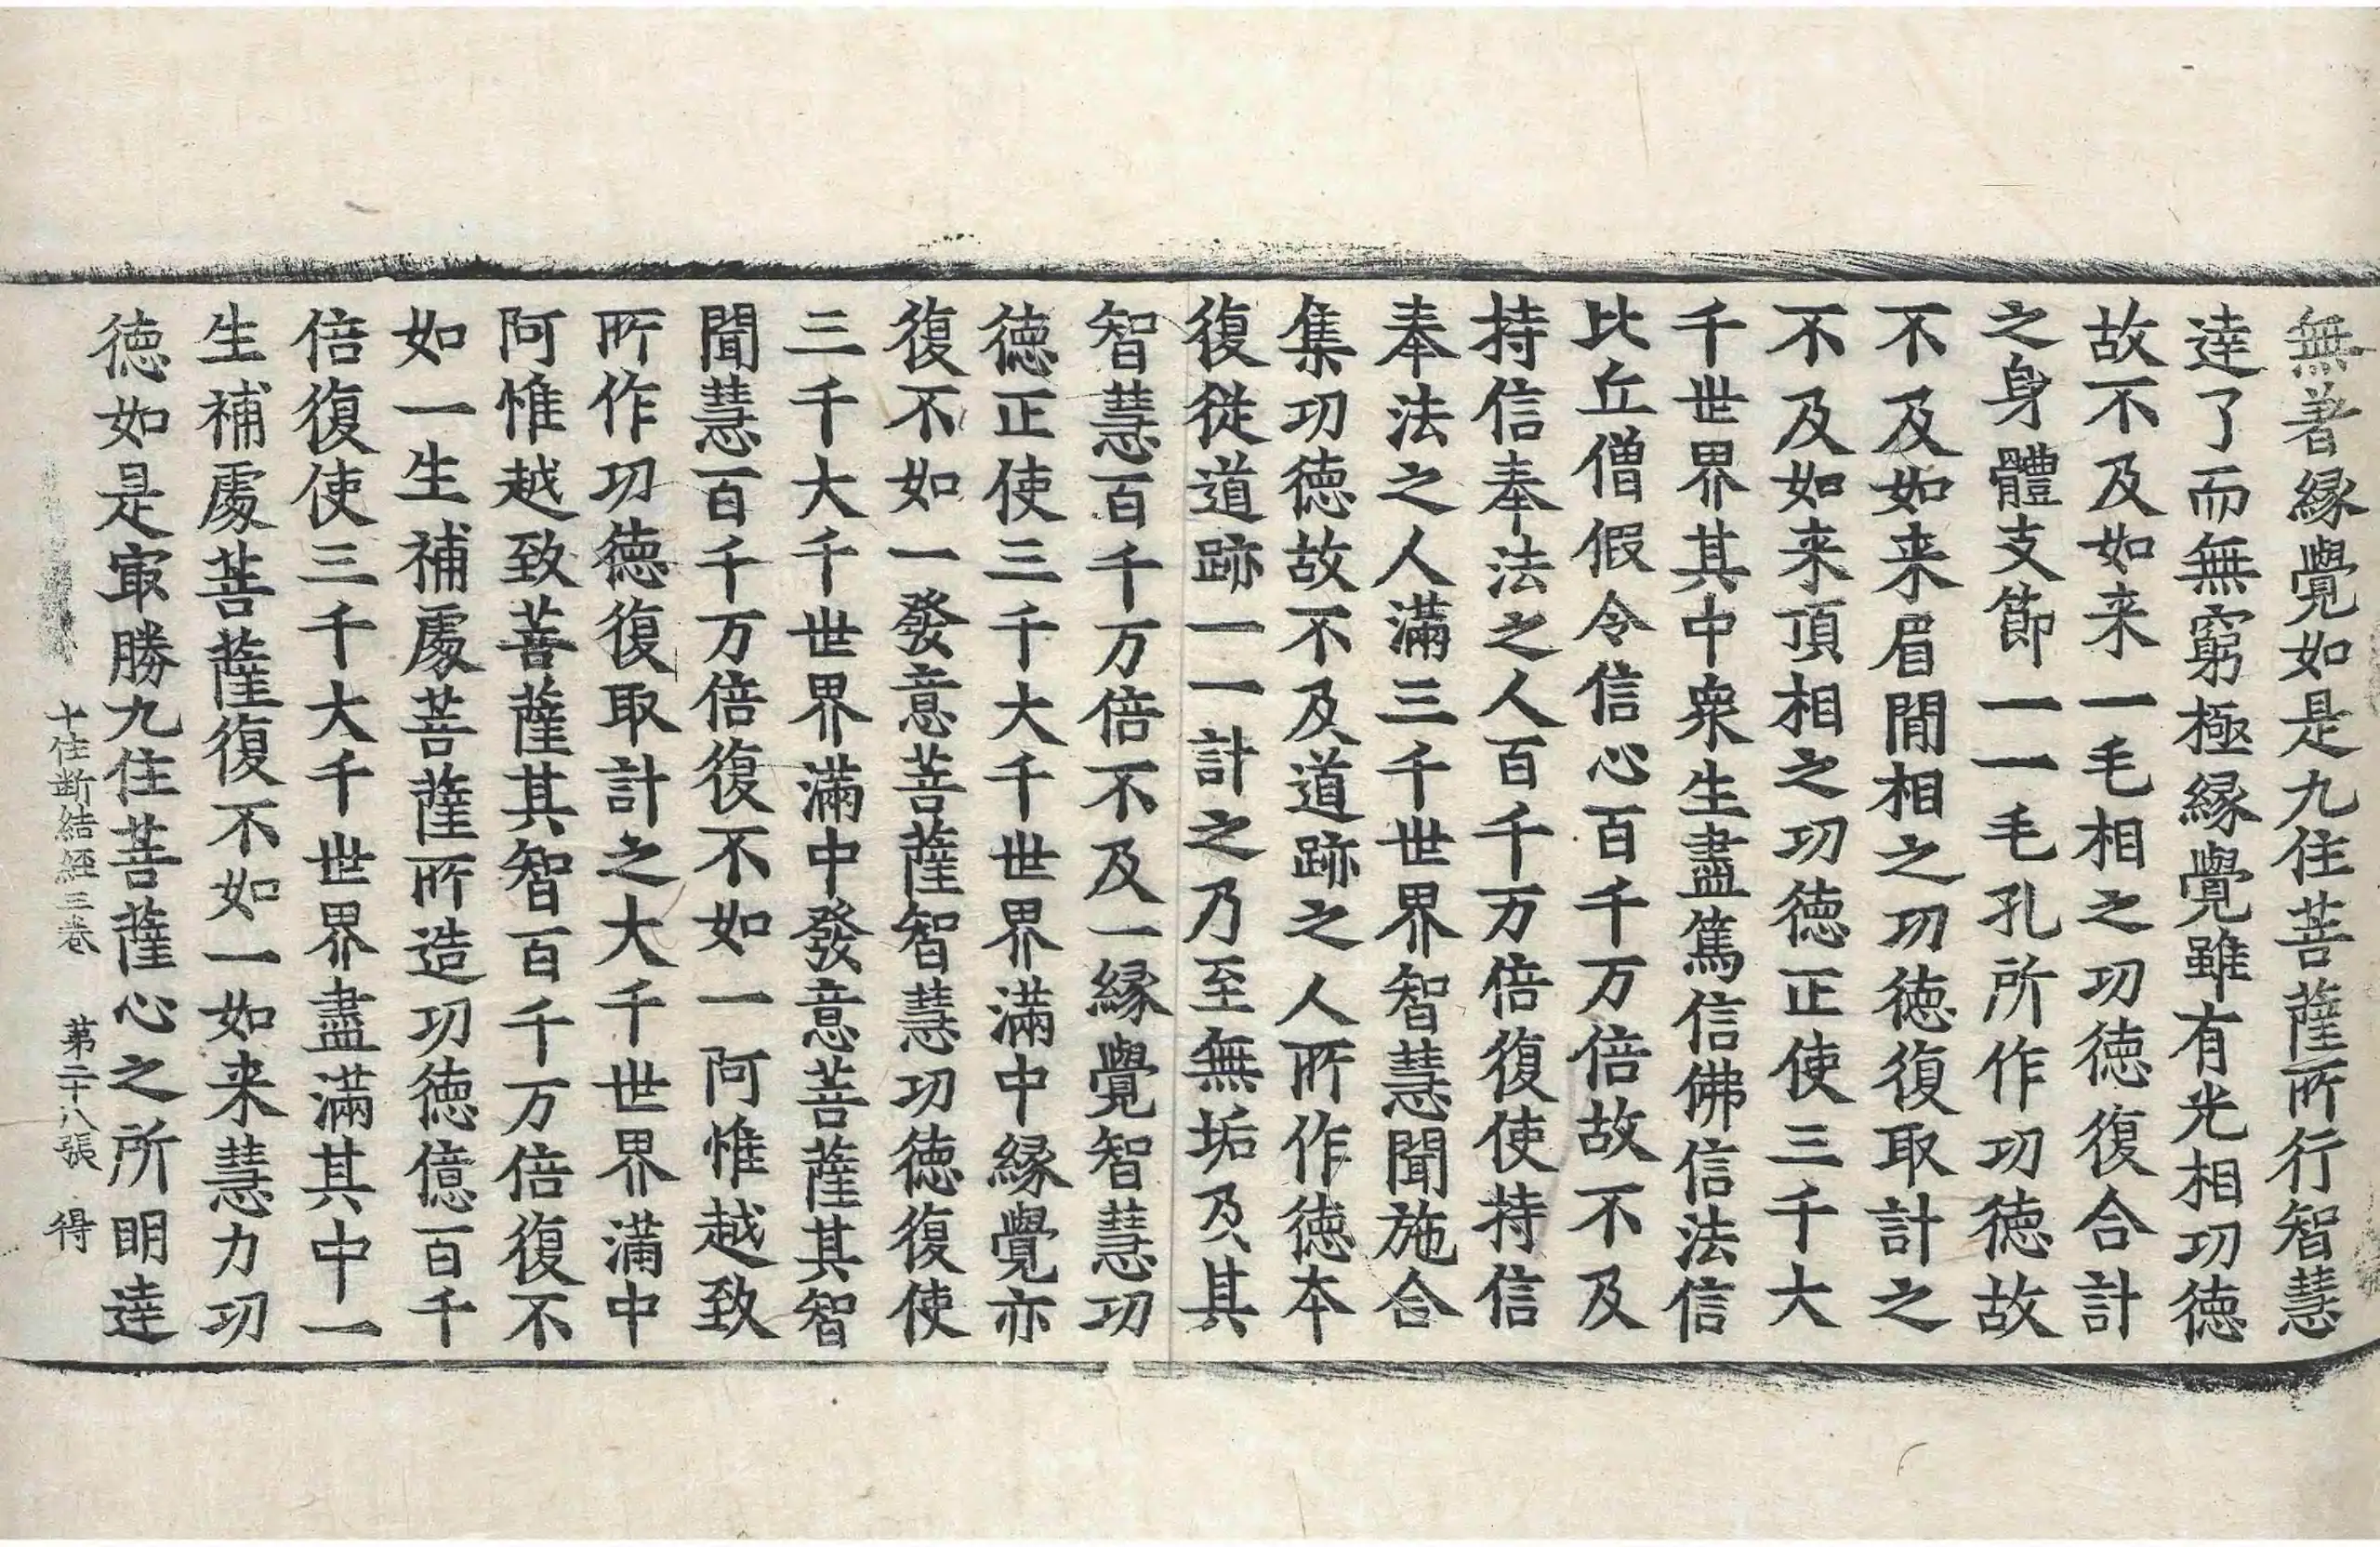 無著縁覺如是九住菩薩所行智慧
達了而無窮極縁覺雖有光相功德
故不及如来一毛相之功德復合計
之身體支節一一毛孔所作功德故
不及如来眉間相之功德復取計之
不及如来頂相之功德正使三千大
千世界其中衆生盡篤信佛信法信
比丘僧假令信心百千万倍故不及
持信奉法之人百千万倍復使持信
奉法之人滿三千世界智慧聞施合
集功德故不及道跡之人所作德本
復従道跡一一計之乃至無垢及其
智慧百千万倍不及一縁覺智慧功
德正使三千大千世界滿中縁覺亦
復不如一發意菩薩智慧功德復使
三千大千世界滿中發意菩薩其智
聞慧百千万倍復不如一阿惟越致
所作功德復取計之大千世界滿中
阿惟越致菩薩其智百千万倍復不
如一生補處菩薩所造功德億百千
倍復使三千大千世界盡滿其中一
生補處菩薩復不如一如来慧力功
德如是㝡勝九住菩薩心之所明達
十住断結經三卷 第二十八張 得